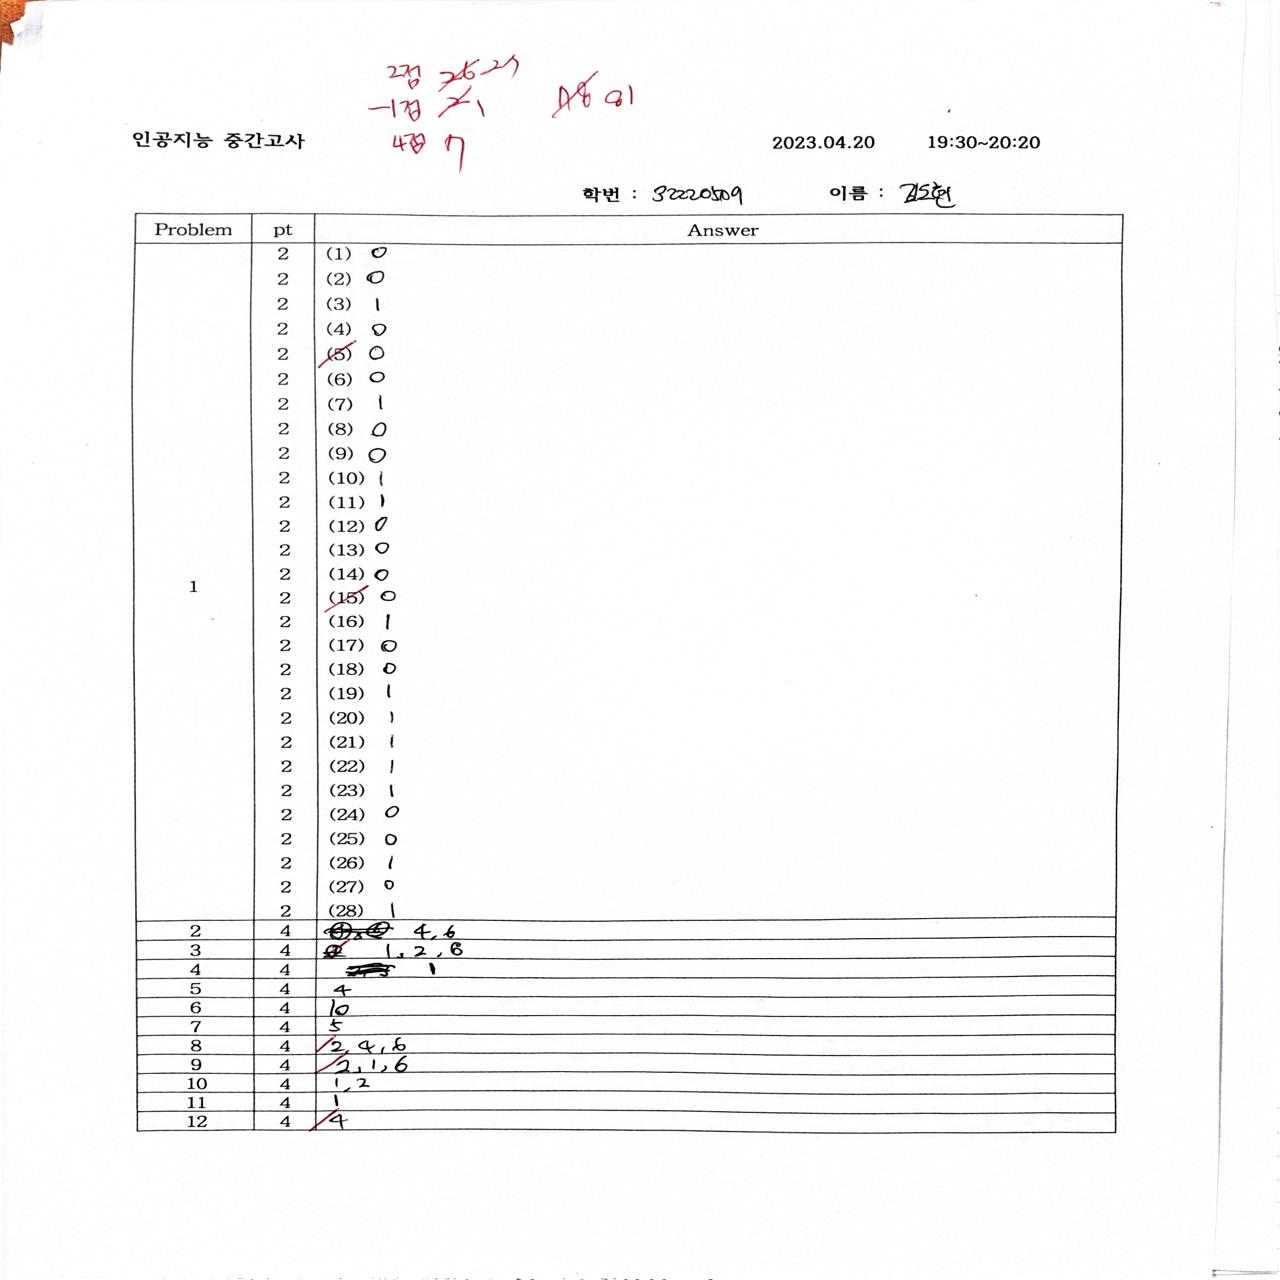 2점 27
-1점 1 81
4점 7
인공지능 중간고사 2023.04.20 19:30~20:20
학번 : 32220509 이름 : 김도현
Problem pt Answer
2 (1) 0
2 (2) 0
2 (3) 1
2 (4) 0
2 (5) 0
2 (6) 0
2 (7) 1
2 (8) 0
2 (9) 0
2 (10) 1
2 (11) 1
2 (12) 0
2 (13) 0
2 (14) 0
1 2 (15) 0
2 (16) 1
2 (17) 0
2 (18) 0
2 (19) 1
2 (20) 1
2 (21) 1
2 (22) 1
2 (23) 1
2 (24) 0
2 (25) 0
2 (26) 1
2 (27) 0
2 (28) 1
2 4 4, 6
3 4 1, 2, 6
4 4 1
5 4 4
6 4 10
7 4 5
8 4 2, 4, 6
9 4 2, 1, 6
10 4 1, 2
11 4 1
12 4 4